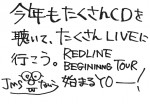 今年もたくさんCDを
聴いて、たくさんLIVEに
行こう。REDLINE
BEGINING TOUR
始まるYOー!
JMS
fan